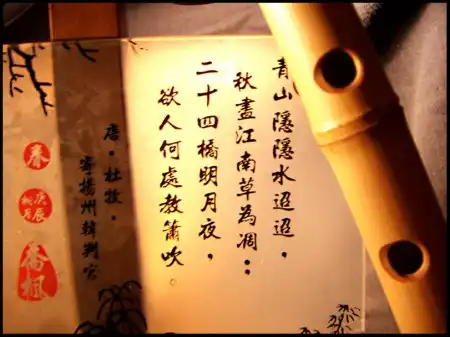 青山隱隱水迢迢，
秋盡江南草為凋；
二十四橋明月夜，
欲人何處教簫吹。
唐．杜牧．
寄揚州韓判官
春
庚辰